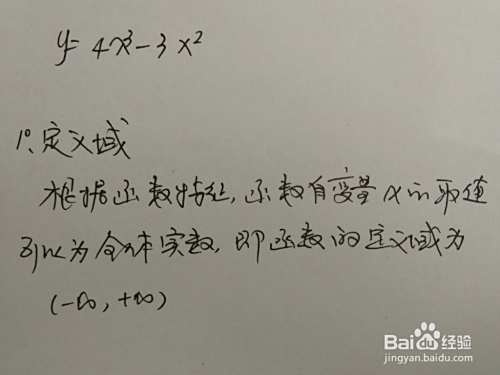 y=4x³-3x²
1°.定义域
根据函数特征,函数自变量x的取值
可以为全体实数,即函数的定义域为
(-∞,+∞)
Baidu经验
jingyan.baidu.com